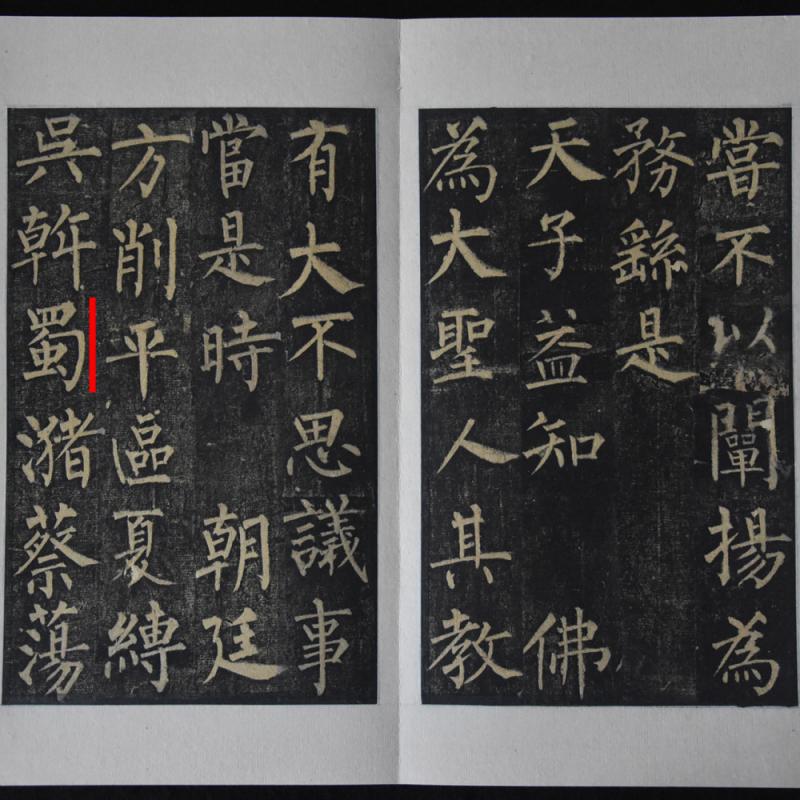 嘗不以闡揚為
務繇是
天子益知 佛
為大聖人其教
有大不思議事
當是時 朝廷
方削平區夏縛
吳斡蜀瀦蔡蕩